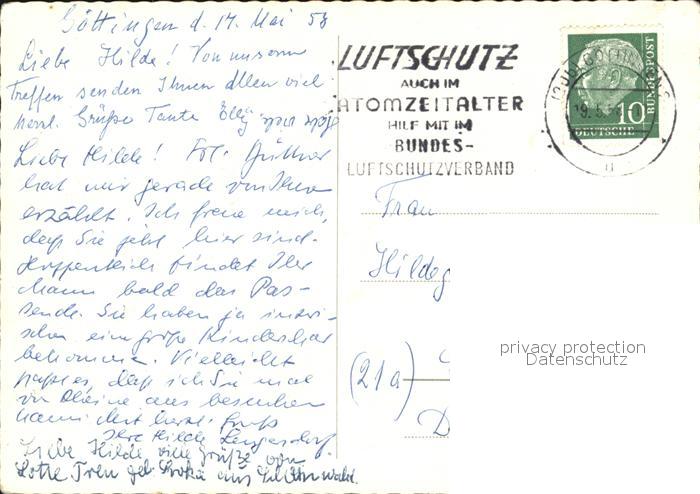 Göttingen d. 17. Mai 58
Liebe Hilde! Von unserm
Treffen senden Ihnen allen viel
herzl. Grüße Tante Elly
Liebe Hilde! Frl. Güttner
hat mir gerade von Ihnen
erzählt. Ich freue mich,
daß Sie jetzt hier sind.
Hoffentlich findet Ihr
Mann bald das Pas-
sende. Sie haben ja inzwi-
schen eine große Kinderschar
bekommen. Vielleicht
paßt es, daß ich Sie mal
von Rheine aus besuchen
kann. Mit herzl. Gruß
Ihre Hilde
Liebe Hilde, viele Grüße von
Lotte geb. aus
LUFTSCHUTZ
AUCH IM
ATOMZEITALTER
HILF MIT IM
BUNDES-
LUFTSCHUTZVERBAND
GÖTTINGEN
19.5.
10
DEUTSCHE
BUNDESPOST
Frau
Hildeg
(21a)
D
privacy protection
Datenschutz